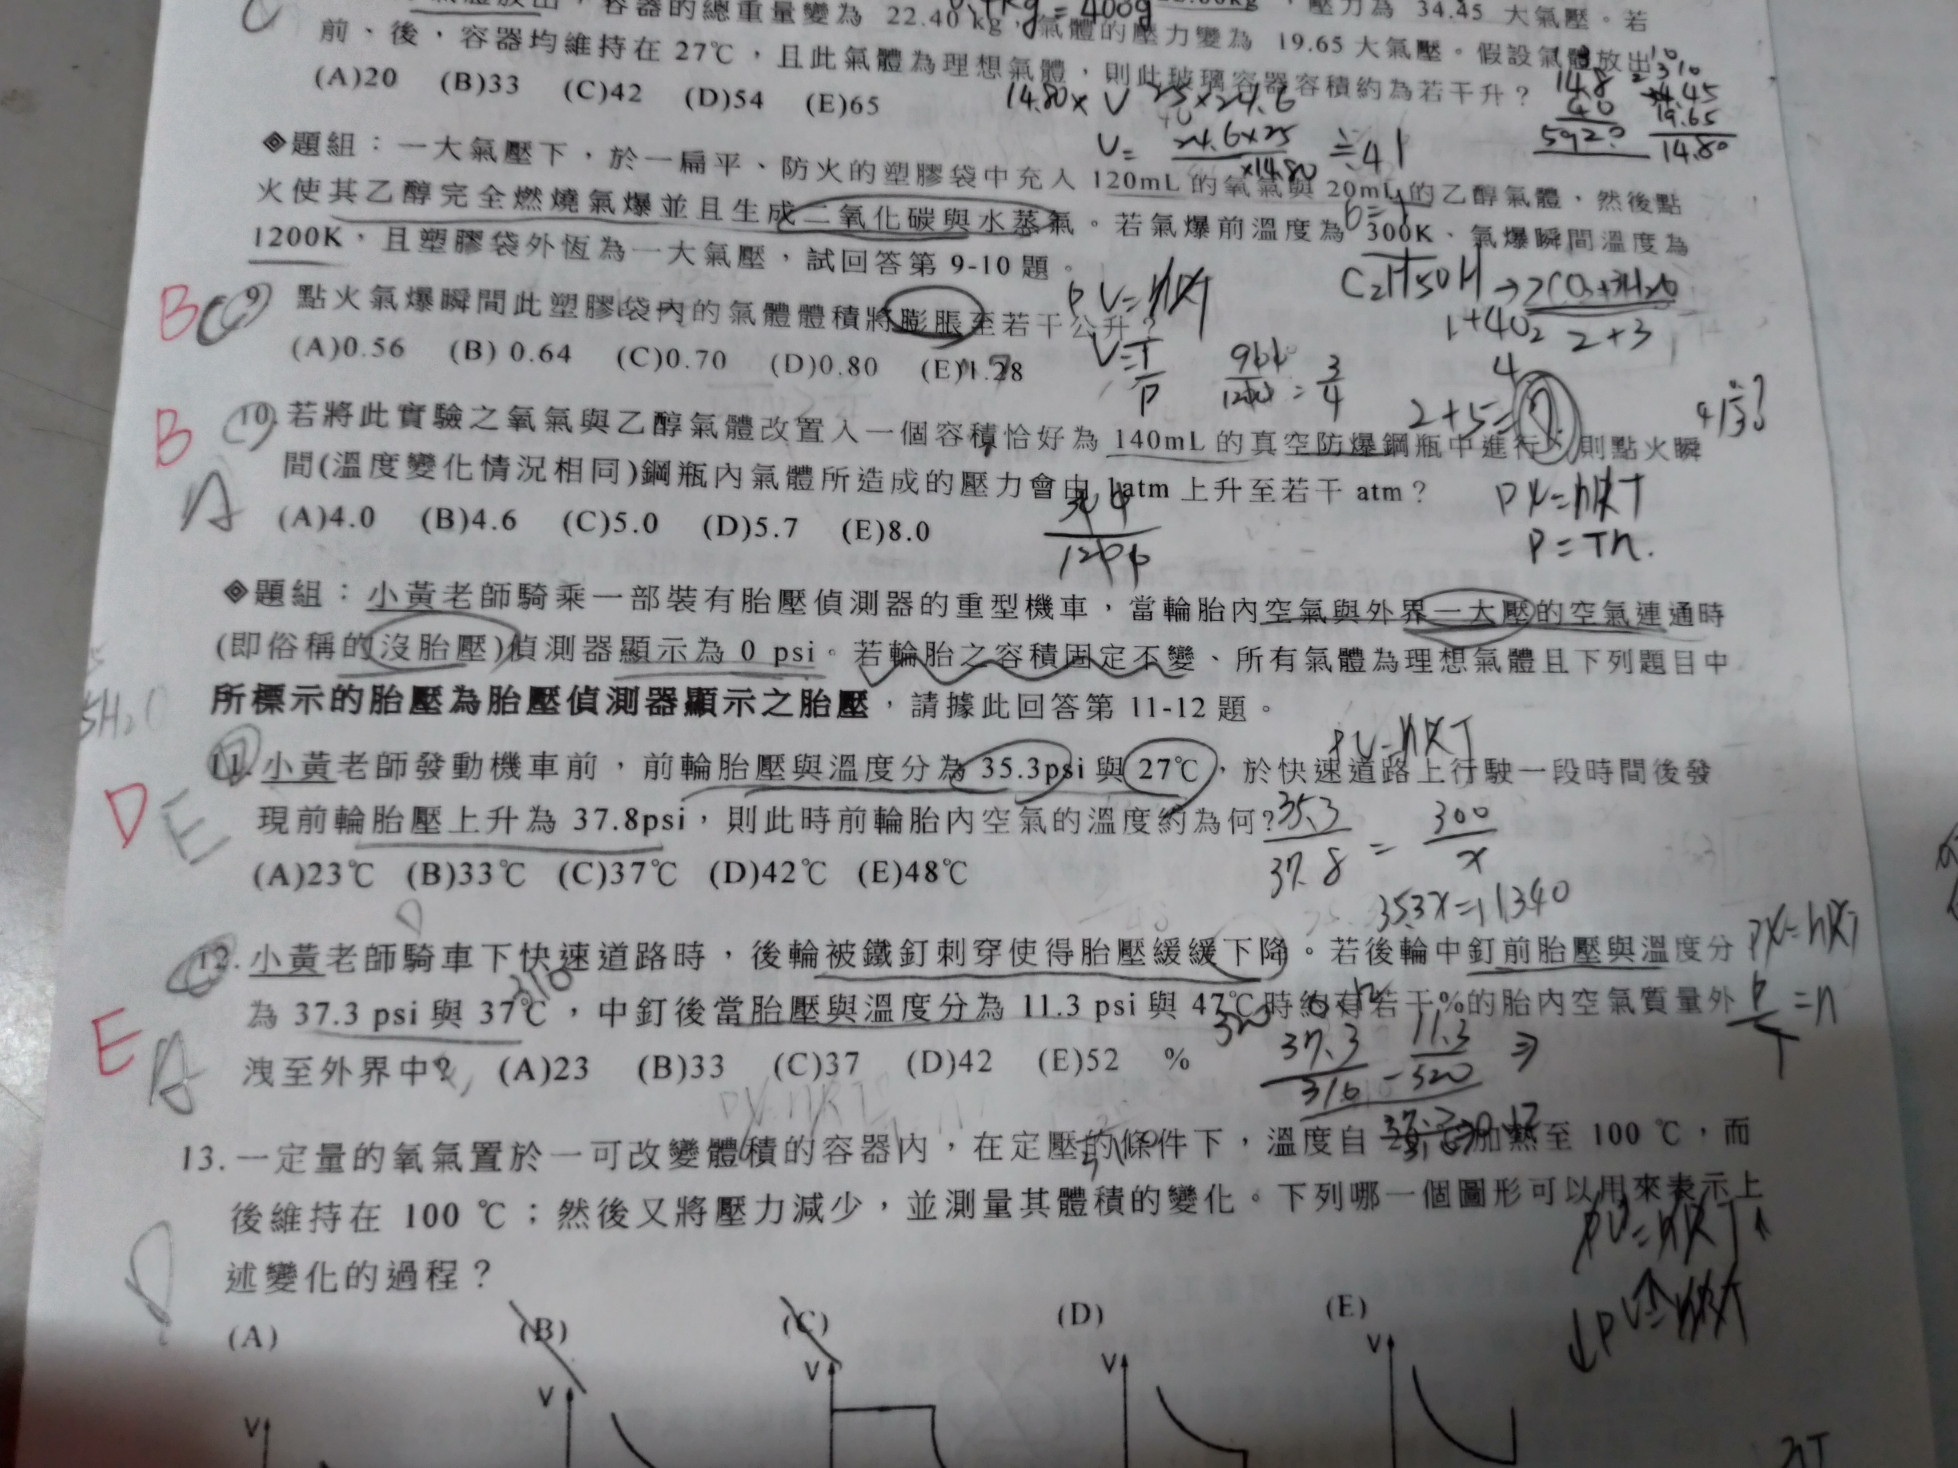 容器的總重量變為 22.40 kg，氣體的壓力變為 19.65 大氣壓。假設氣體放出
壓力為 34.45 大氣壓。若
前、後，容器均維持在 27℃，且此氣體為理想氣體，則此玻璃容器容積約為若干升？
(A)20 (B)33 (C)42 (D)54 (E)65
14.80× V 25×24.6
V= 24.6×25 ≒41
×14.80
14.8
40
5920
34.45
19.65
14.80
◈題組：一大氣壓下，於一扁平、防火的塑膠袋中充入 120mL 的氧氣與 20mL 的乙醇氣體，然後點
火使其乙醇完全燃燒氣爆並且生成二氧化碳與水蒸氣。若氣爆前溫度為 300K、氣爆瞬間溫度為
1200K，且塑膠袋外恆為一大氣壓，試回答第 9-10 題。
C2H5OH→2CO2+3H2O
1+4O2 2+3
B
9) 點火氣爆瞬間此塑膠袋內的氣體體積將膨脹至若干公升？
PV=nRT
(A)0.56 (B) 0.64 (C)0.70 (D)0.80 (E)1.28
V=T
P
3
4
2+5=7
B
10.若將此實驗之氧氣與乙醇氣體改置入一個容積恰好為 140mL 的真空防爆鋼瓶中進行，則點火瞬
間(溫度變化情況相同)鋼瓶內氣體所造成的壓力會由 1atm 上升至若干 atm？
A
(A)4.0 (B)4.6 (C)5.0 (D)5.7 (E)8.0
PV=nRT
P=Tn.
◈題組：小黃老師騎乘一部裝有胎壓偵測器的重型機車，當輪胎內空氣與外界一大壓的空氣連通時
(即俗稱的沒胎壓)偵測器顯示為 0 psi。若輪胎之容積固定不變、所有氣體為理想氣體且下列題目中
所標示的胎壓為胎壓偵測器顯示之胎壓，請據此回答第 11-12 題。
PV=nRT
11.小黃老師發動機車前，前輪胎壓與溫度分為 35.3psi 與 27℃，於快速道路上行駛一段時間後發
D E
現前輪胎壓上升為 37.8psi，則此時前輪胎內空氣的溫度約為何?
(A)23℃ (B)33℃ (C)37℃ (D)42℃ (E)48℃
35.3 = 300
37.8 x
353x=11340
12.小黃老師騎車下快速道路時，後輪被鐵釘刺穿使得胎壓緩緩下降。若後輪中釘前胎壓與溫度分
PV=nRT
為 37.3 psi 與 37℃，中釘後當胎壓與溫度分為 11.3 psi 與 47℃時約有若干%的胎內空氣質量外
310
320
P = n
T
E A
洩至外界中？ (A)23 (B)33 (C)37 (D)42 (E)52 %
37.3 11.3
310 - 320
13.一定量的氧氣置於一可改變體積的容器內，在定壓的條件下，溫度自 加熱至 100 ℃，而
後維持在 100 ℃；然後又將壓力減少，並測量其體積的變化。下列哪一個圖形可以用來表示上
述變化的過程？
PV=nRT
D
(A) (B) (C) (D) (E)
V V V V V